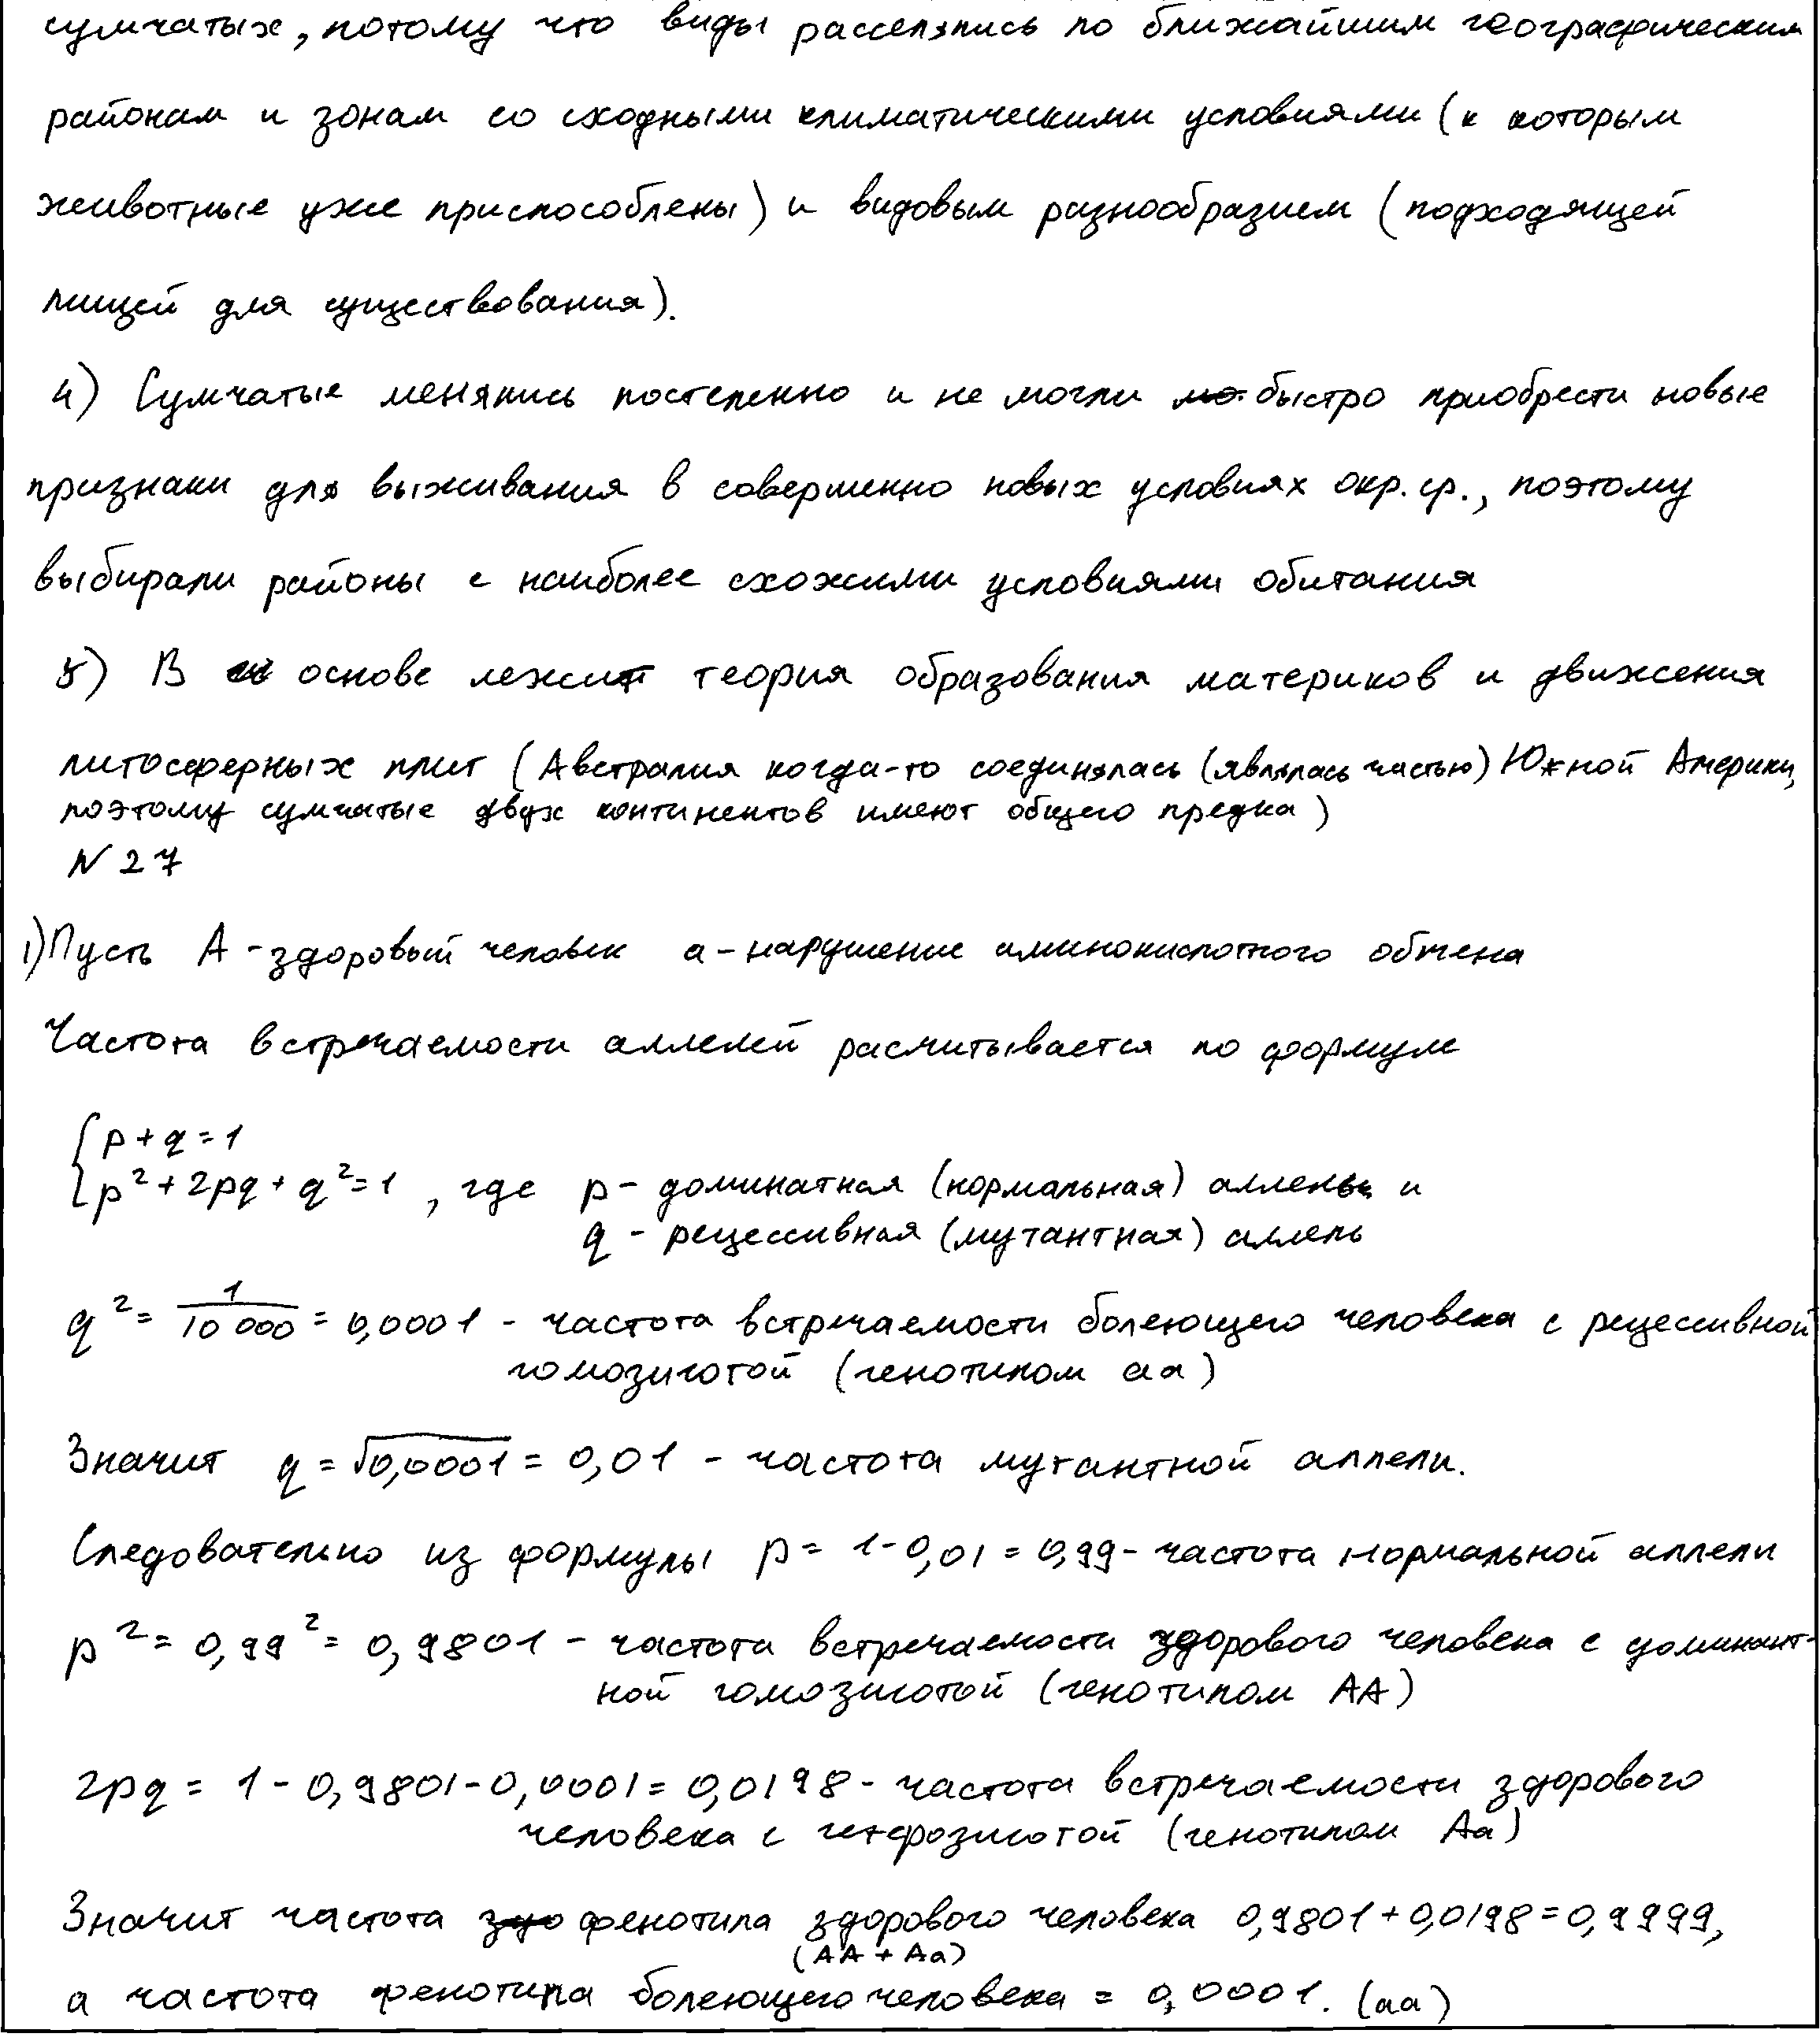 сумчатых, потому что виды расселялись по ближайшим географическим
районам и зонам со сходными климатическими условиями (к которым
животные уже приспособлены) и видовым разнообразием (подходящей
пищей для существования).
4) Сумчатые менялись постепенно и не могли быстро приобрести новые
признаки для выживания в совершенно новых условиях окр. ср., поэтому
выбирали районы с наиболее схожими условиями обитания
5) В основе лежит теория образования материков и движения
литосферных плит (Австралия когда-то соединялась (являлась частью) Южной Америки,
поэтому сумчатые двух континентов имеют общего предка)
N 27
1) Пусть А - здоровый человек а - нарушение аминокислотного обмена
Частота встречаемости аллелей расчитывается по формуле
{ p + q = 1
p² + 2pq + q² = 1 , где p - доминатная (нормальная) аллель и
q - рецессивная (мутантная) аллель
q² = 1/10 000 = 0,0001 - частота встречаемости болеющего человека с рецессивной
гомозиготой (генотипом аа)
Значит q = √0,0001 = 0,01 - частота мутантной аллели.
Следовательно из формулы p = 1 - 0,01 = 0,99 - частота нормальной аллели
p² = 0,99² = 0,9801 - частота встречаемости здорового человека с доминант-
ной гомозиготой (генотипом АА)
2pq = 1 - 0,9801 - 0,0001 = 0,0198 - частота встречаемости здорового
человека с гетерозиготой (генотипом Аа)
Значит частота фенотипа здорового человека 0,9801 + 0,0198 = 0,9999,
(АА + Аа)
а частота фенотипа болеющего человека = 0,0001. (аа)